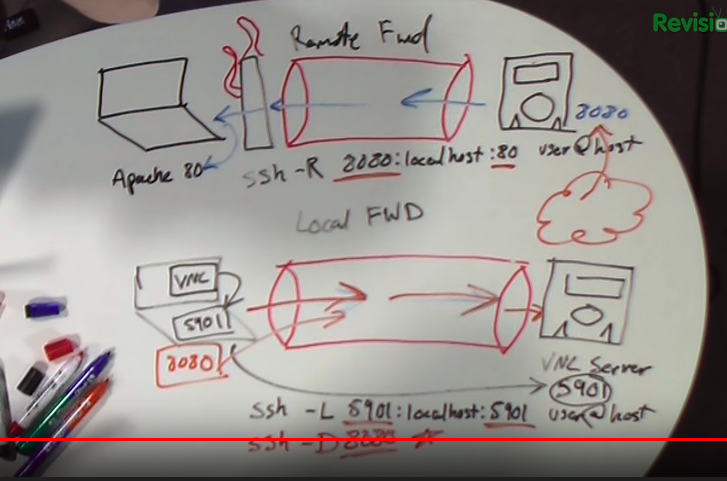 Revisio
Remote Fwd
8080
Apache 80
ssh -R 8080:localhost:80 user@host
Local FWD
VNC
5901
8080
VNC Server
5901
ssh -L 5901:localhost:5901 user@host
ssh -D 8080